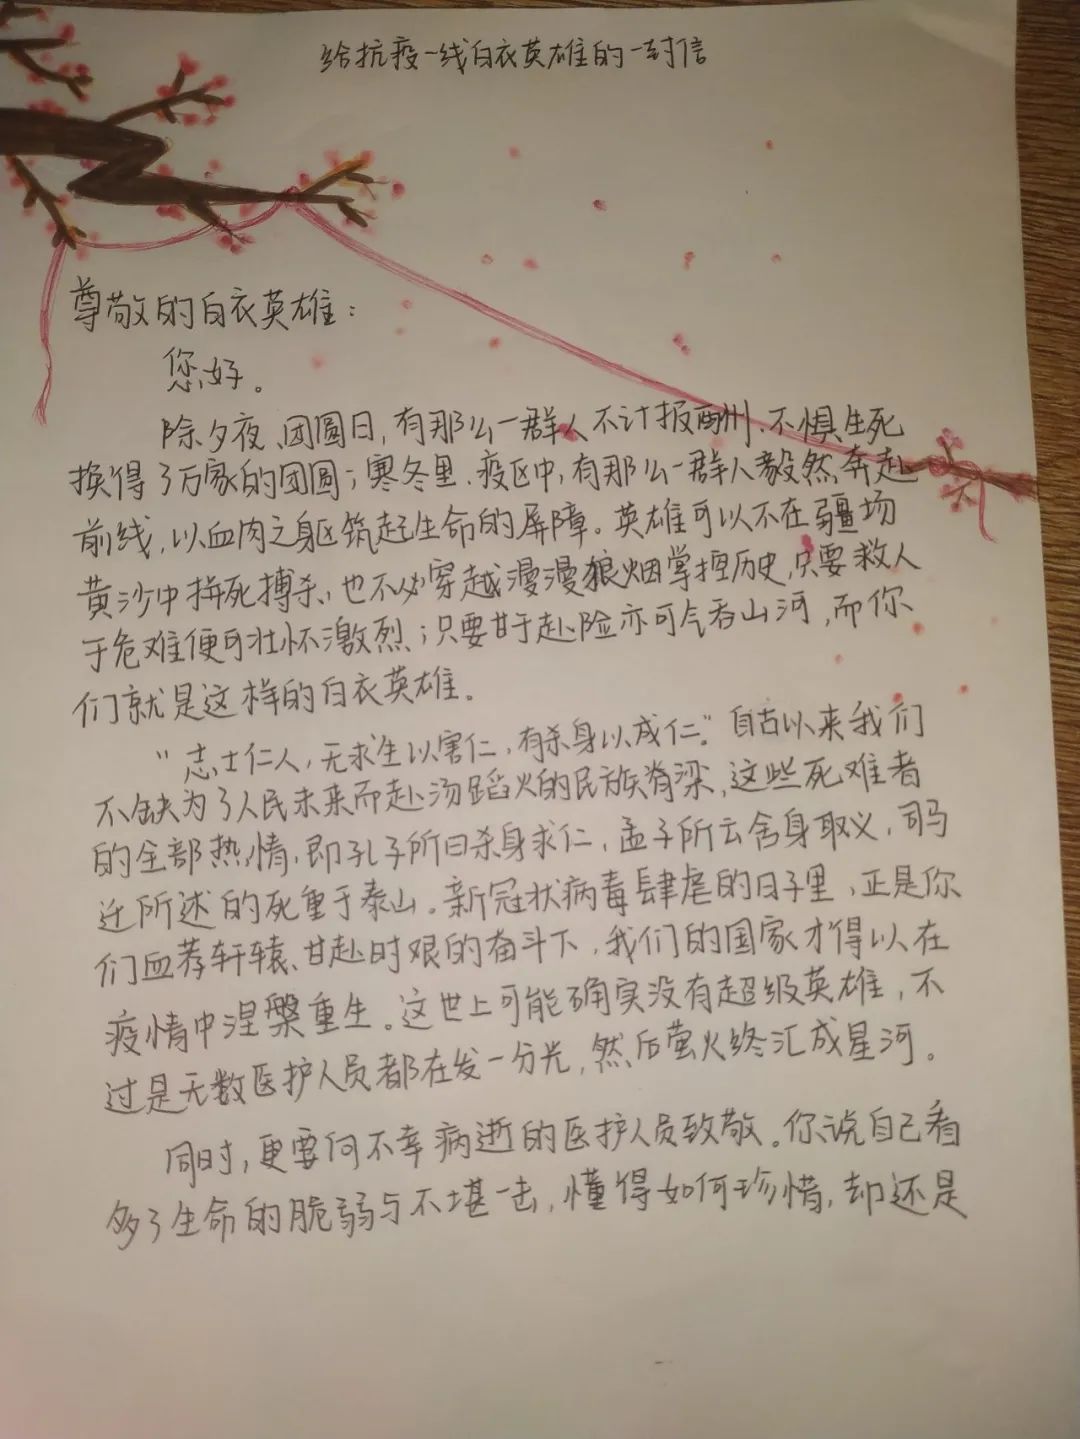 给抗疫一线白衣英雄的一封信
尊敬的白衣英雄：
您好。
除夕夜、团圆日，有那么一群人不计报酬、不惧生死
换得了万家的团圆；寒冬里、疫区中，有那么一群人毅然奔赴
前线，以血肉之身躯筑起生命的屏障。英雄可以不在疆场
黄沙中拼死搏杀，也不必穿越漫漫狼烟掌控历史，只要救人
于危难便可壮怀激烈；只要甘于赴险亦可气吞山河，而你
们就是这样的白衣英雄。
“志士仁人，无求生以害仁，有杀身以成仁。”自古以来我们
不缺为了人民未来而赴汤蹈火的民族脊梁，这些死难者
的全部热情，即孔子所曰杀身求仁，孟子所云舍身取义，司马
迁所述的死重于泰山。新冠状病毒肆虐的日子里，正是你
们血荐轩辕、甘赴时艰的奋斗下，我们的国家才得以在
疫情中涅槃重生。这世上可能确实没有超级英雄，不
过是无数医护人员都在发一分光，然后萤火终汇成星河。
同时，更要向不幸病逝的医护人员致敬。你说自己看
多了生命的脆弱与不堪一击，懂得如何珍惜，却还是